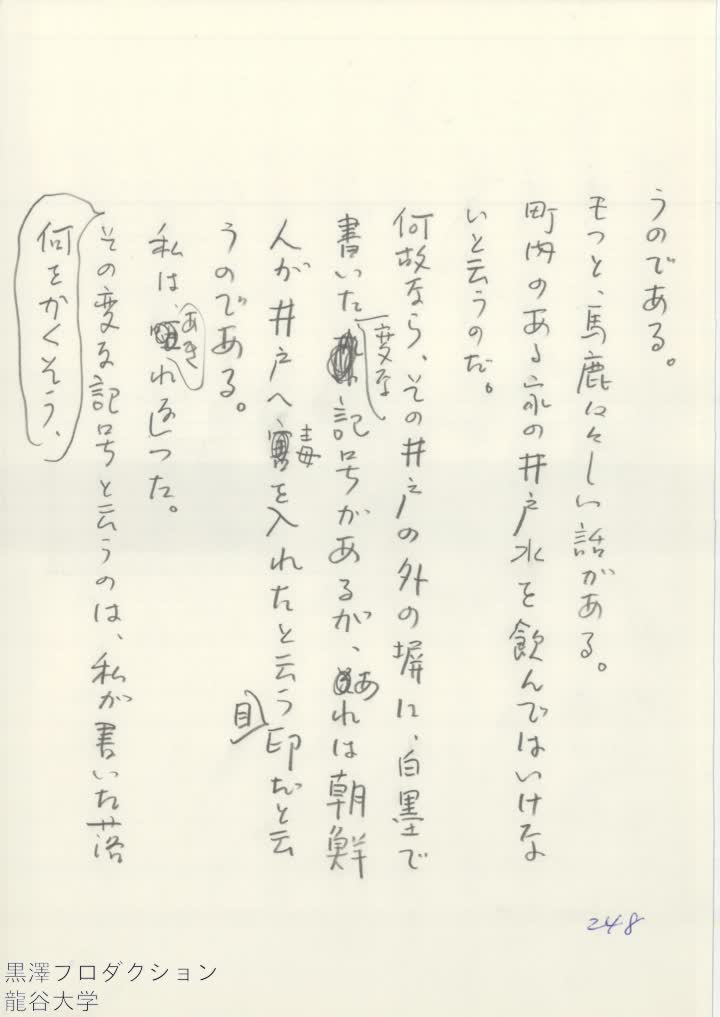 うのである。
もつと、馬鹿々々しい話がある。
町内のある家の井戸水を飲んではいけな
いと云うのだ。
何故なら、その井戸の外の塀に、白墨で
書いた変な記号があるが、あれは朝鮮
人が井戸へ毒を入れたと云う目印だと云
うのである。
私は、あきれ返つた。
その変な記号と云うのは、私が書いた落
何をかくそう、
248
黒澤プロダクション
龍谷大学